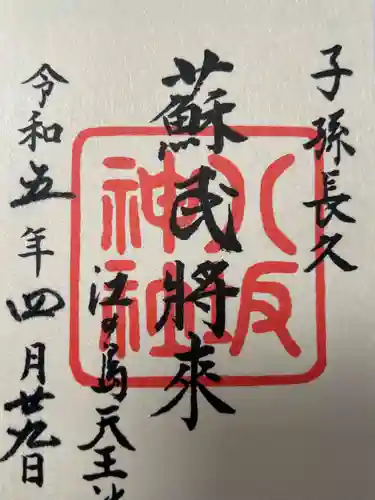 子孫長久
蘇民將來
八坂神社
江の島天王
令和五年四月廿九日